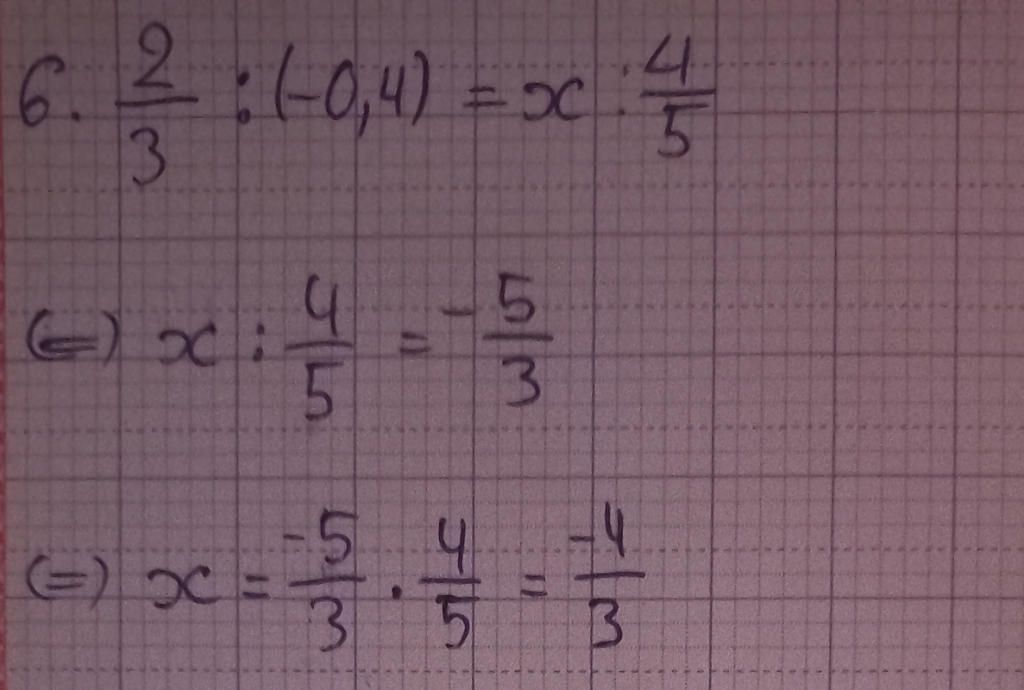 6. 2/3 : (-0,4) = x : 4/5
(=) x : 4/5 = -5/3
(=) x = -5/3 . 4/5 = -4/3